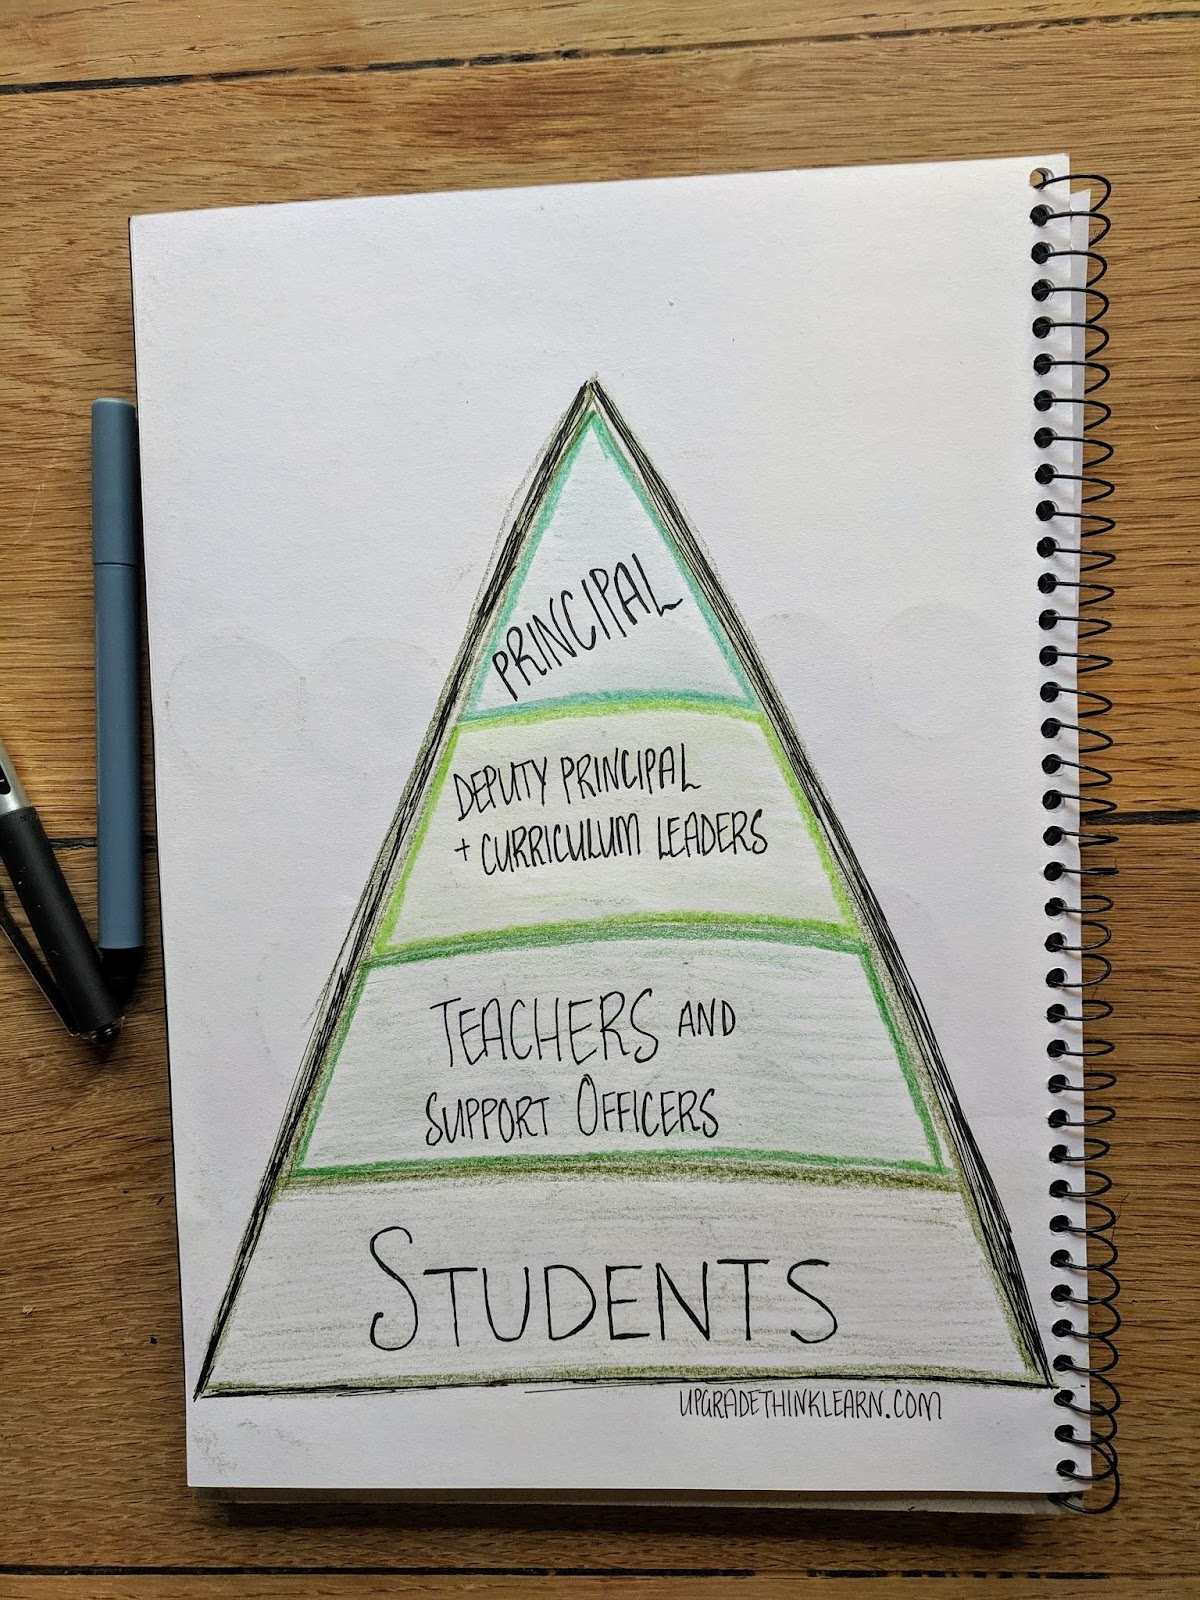 PRINCIPAL
DEPUTY PRINCIPAL
+ CURRICULUM LEADERS
TEACHERS AND
SUPPORT OFFICERS
STUDENTS
UPGRADETHINKLEARN.COM